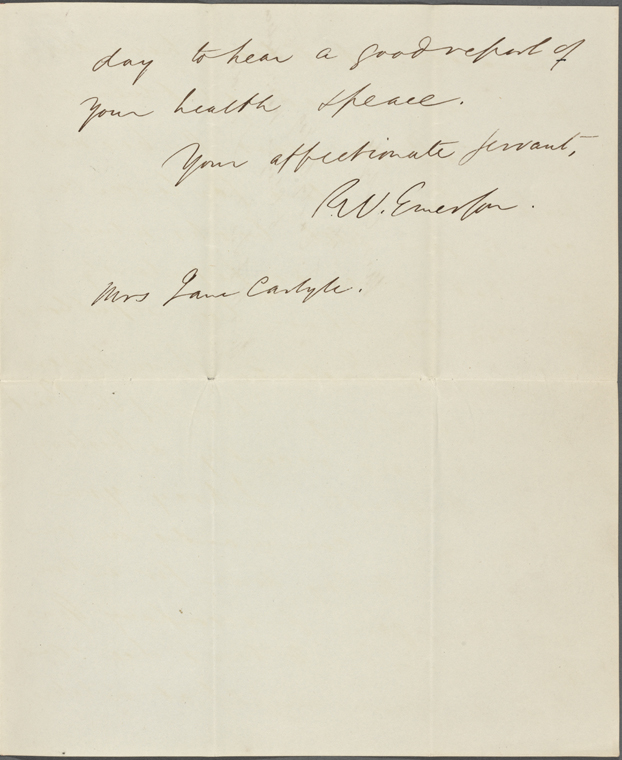 day to hear a good report of
your health & peace.
Your affectionate servant,
R.W. Emerson.
Mrs Jane Carlyle.